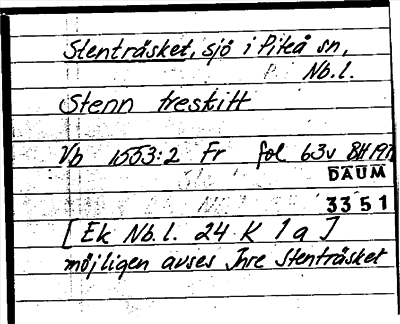 Stenträsket, sjö i Piteå sn,
Nb.l.
Stenn treskitt
Vb 1553:2 Fr fol 63v BH
DAUM
3351
[Ek Nb.l. 24 K 1 a]
möjligen avses Inre Stenträsket